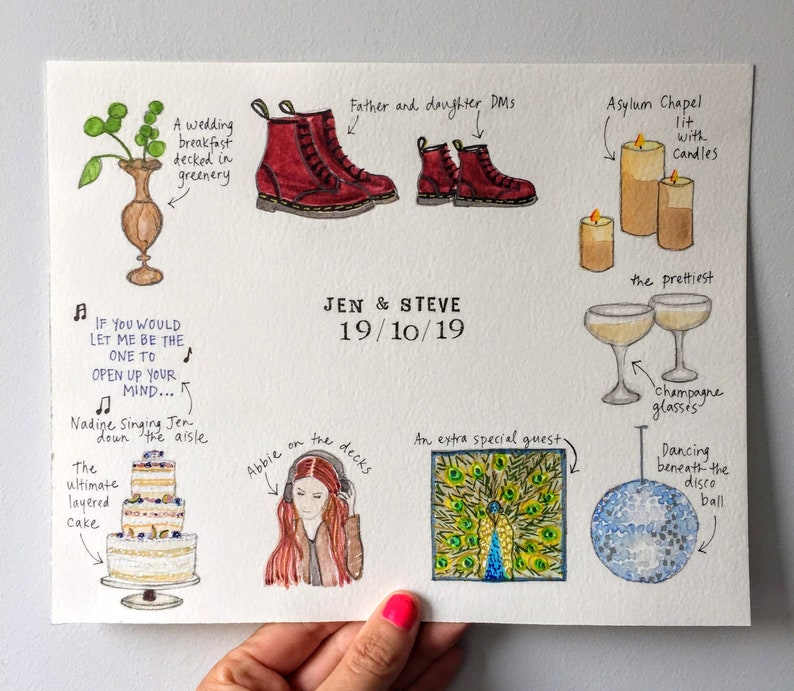 A wedding
breakfast
decked in
greenery
Father and daughter DMs
Asylum Chapel
lit
with
candles
JEN & STEVE
19/10/19
the prettiest
champagne
glasses
IF YOU WOULD
LET ME BE THE
ONE TO
OPEN UP YOUR
MIND...
Nadine Singing Jen
down the aisle
The
ultimate
layered
cake
Abbie on the decks
An extra special guest
Dancing
beneath the
disco
ball